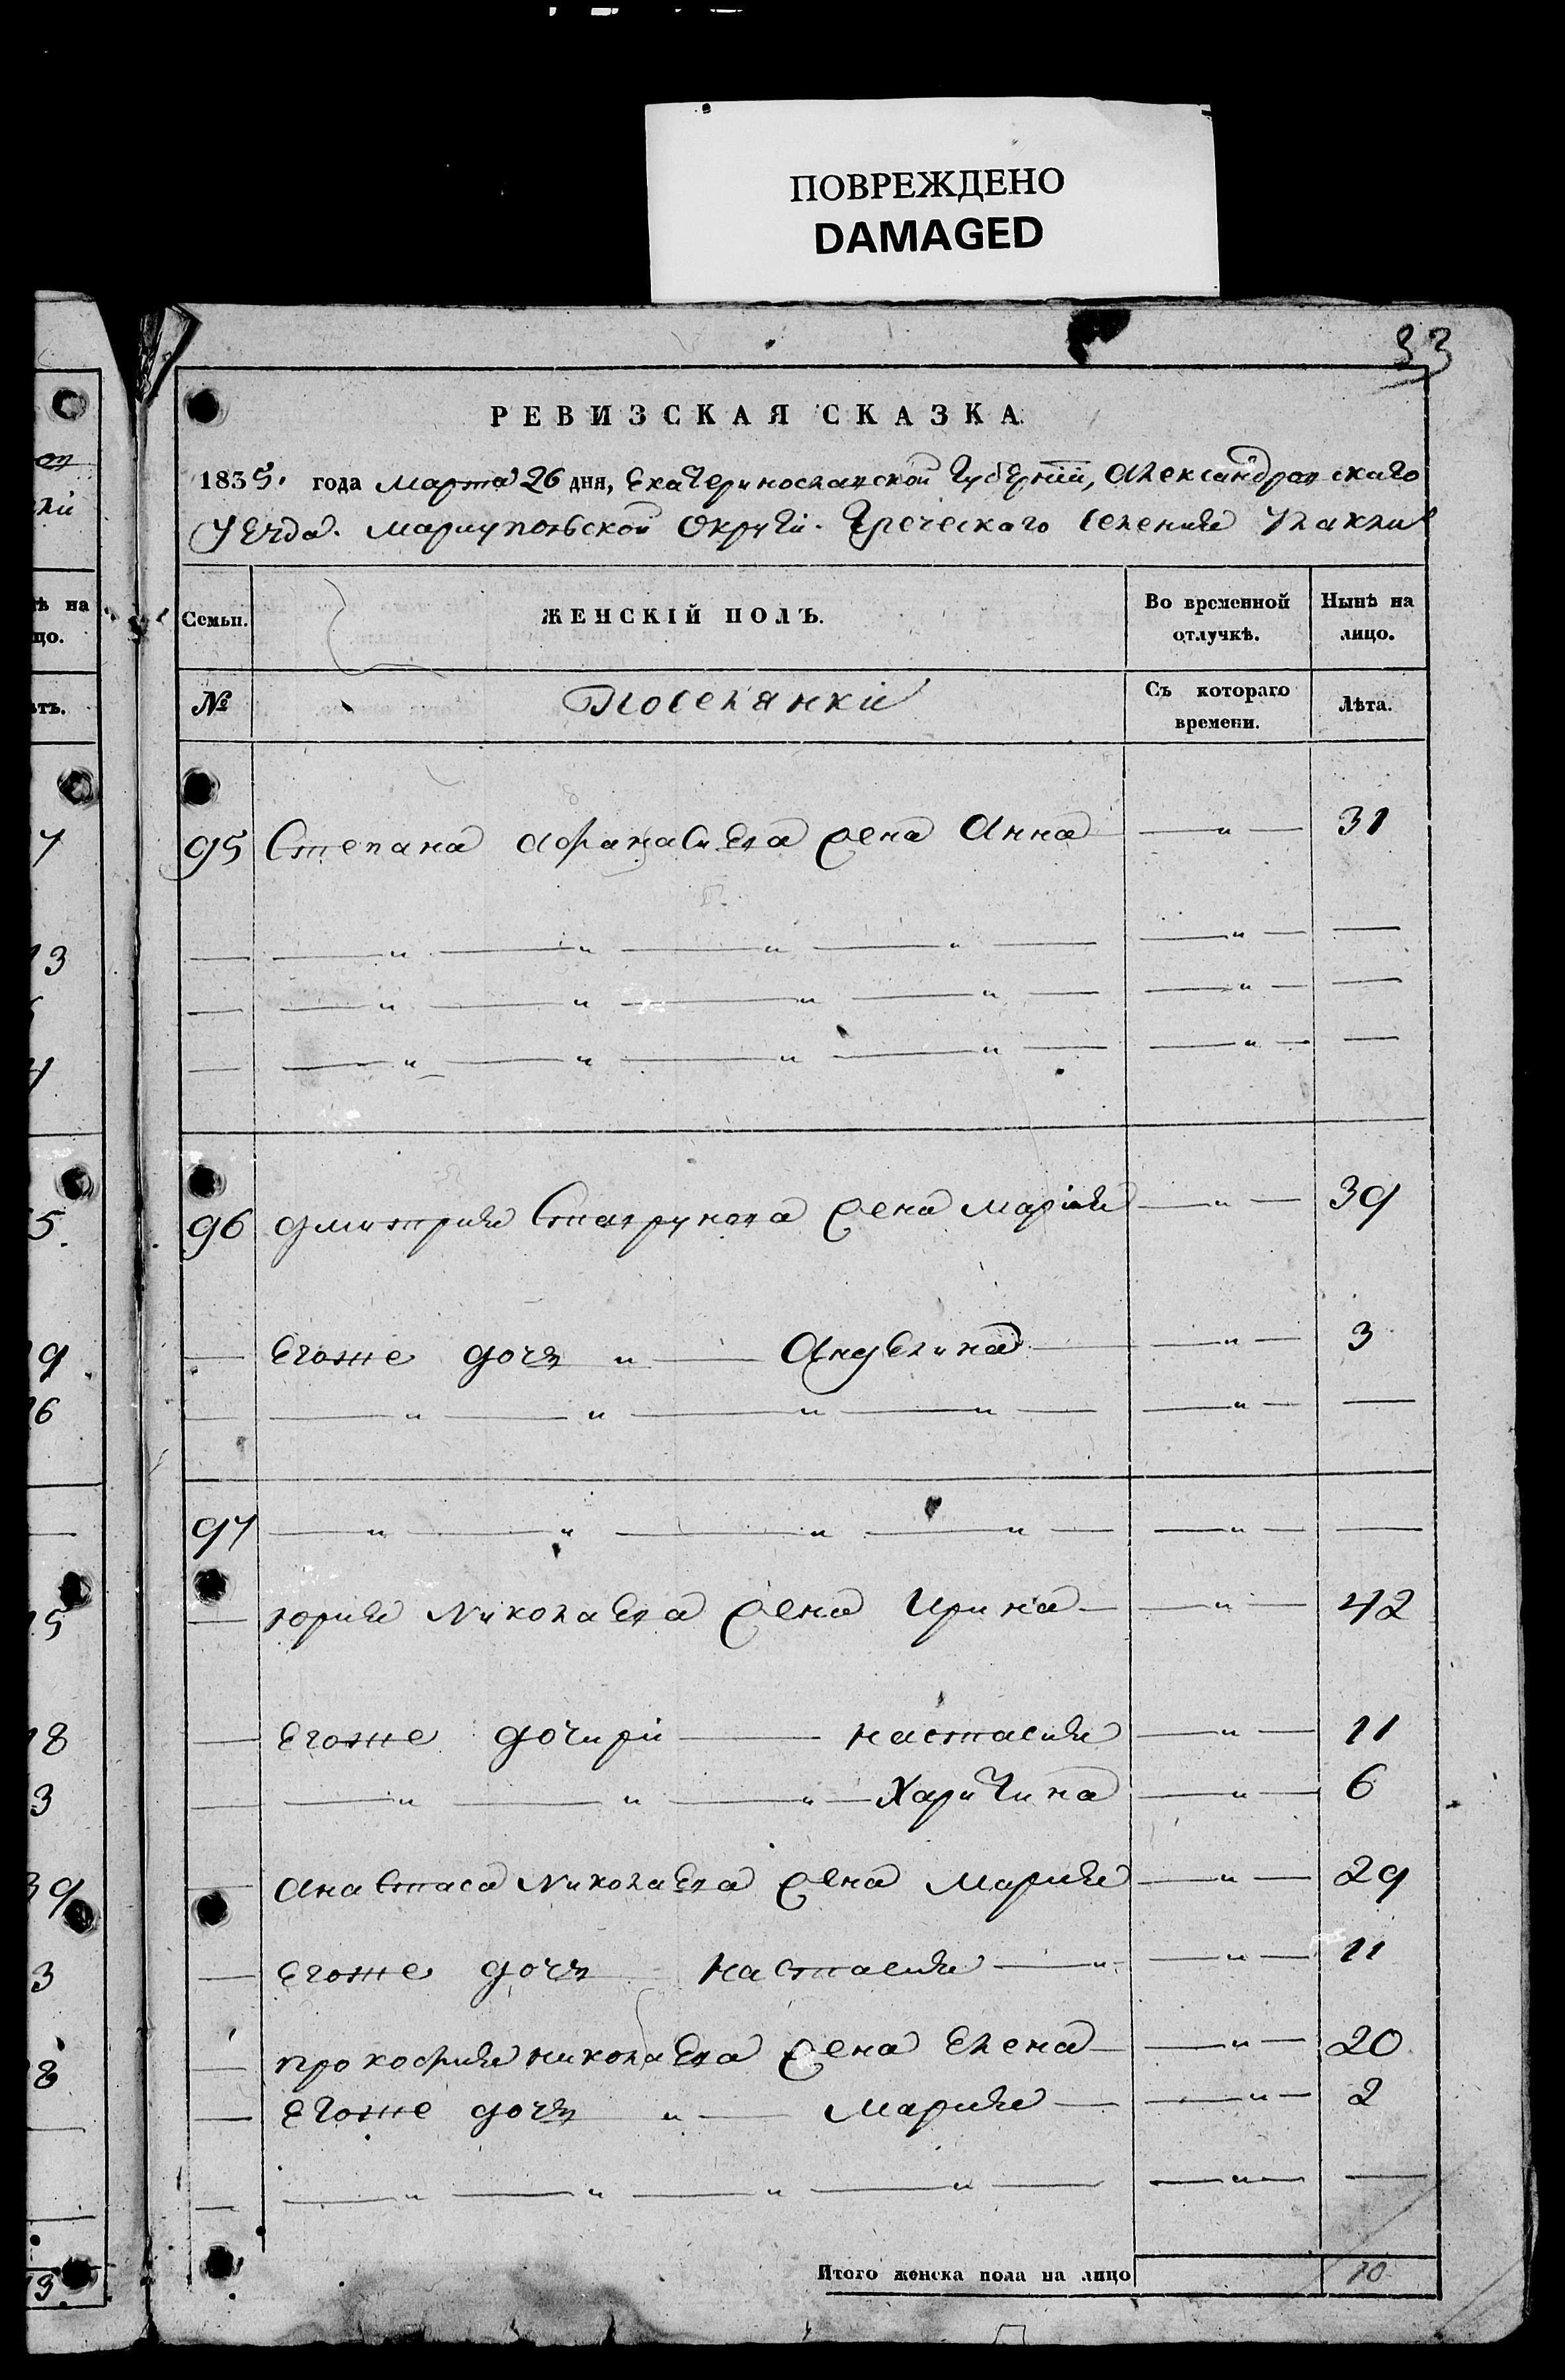 ПОВРЕЖДЕНО
DAMAGED
33
РЕВИЗСКАЯ СКАЗКА.
1835. года Марта 26 дня, Екатеринославской Губернии, Александровскаго
Уезда. Мариупольской Округи. Греческаго Селения
Семьи. ЖЕНСКІЙ ПОЛЪ. Во временной отлучкѣ. Нынѣ на лицо.
№ Поселянки Съ котораго времени. Лѣта.
95 Степана Афанасиева жена Анна — " — 31
96 Дмитрия жена Мария — " — 39
Егоже дочь " — — " — 3
97 — " — " — " — " — — " — —
Юрия Николаева жена Ирина — — " — 42
Егоже дочири — Настасия — " — 11
— " — " — " — Харитина — " — 6
Анастаса Николаева жена Мария — " — 29
Егоже дочь Настасия — " — — " — 11
Прокофия Николаева жена Елена — — " — 20
Егоже дочь " — Мария — — " — 2
Итого женска пола на лицо 10